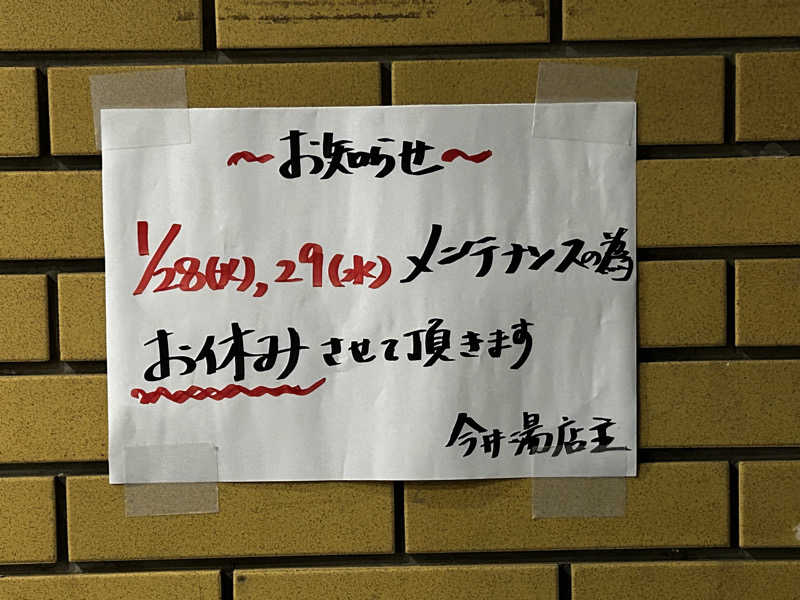 〜お知らせ〜
1/28(火),29(水)メンテナンスの為
お休みさせて頂きます
今井湯店主